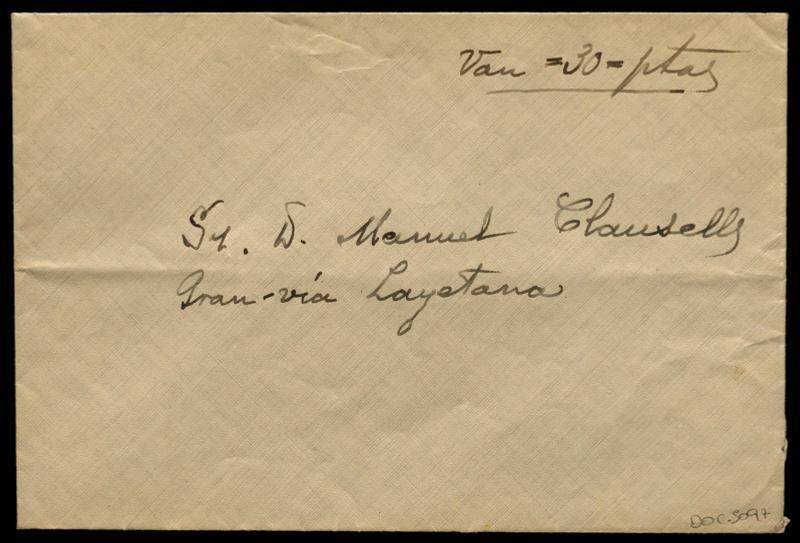 Van =30= ptas
Sr. D. Manuel Clausells
Gran-vía Layetana
DOC.5097